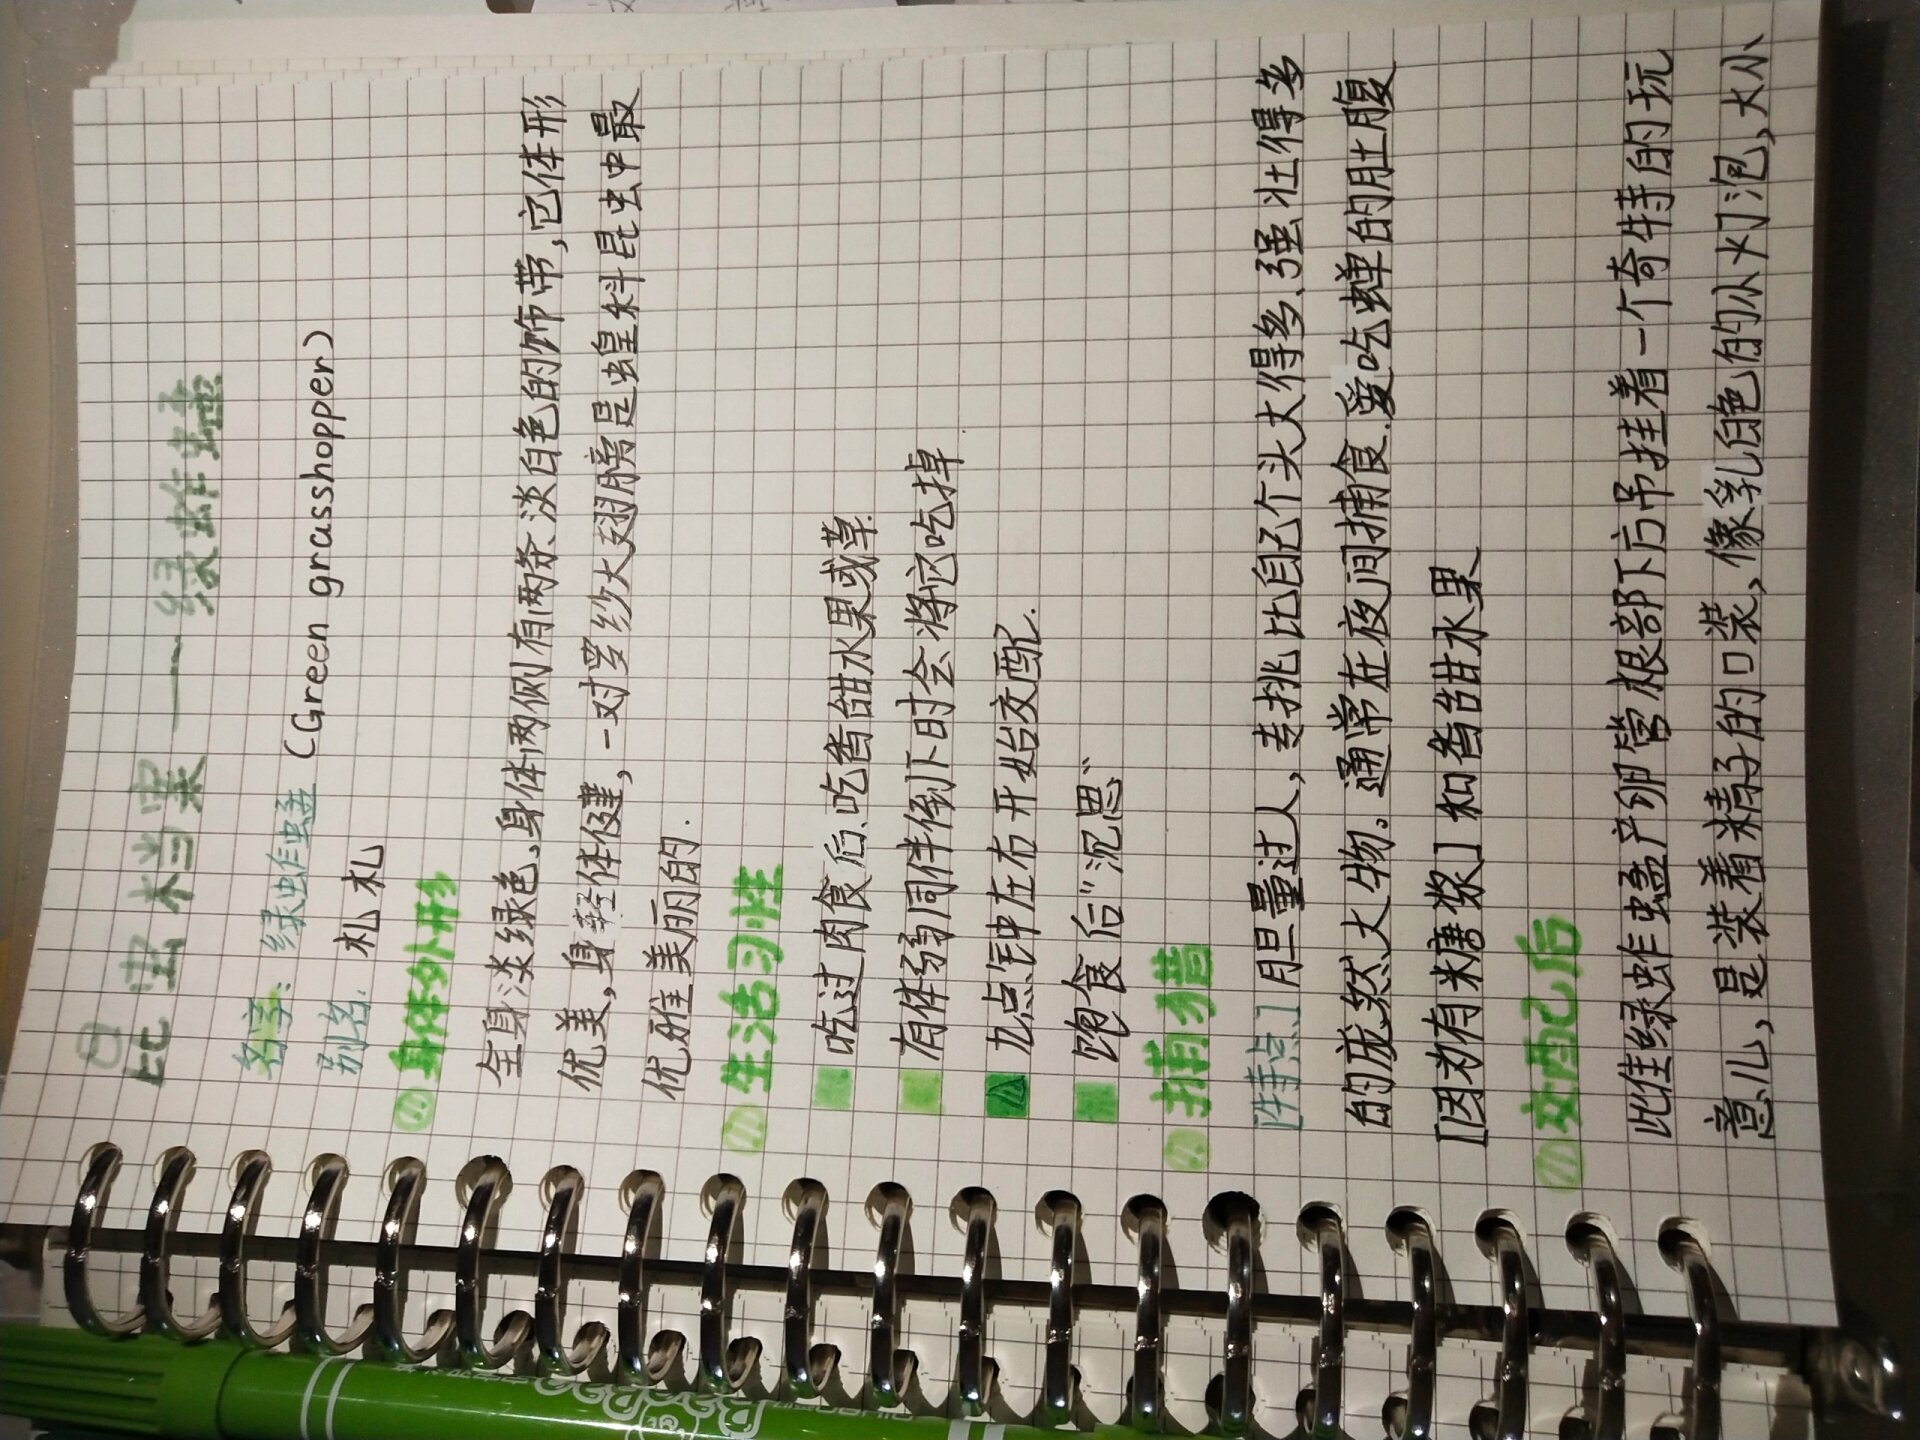 昆虫档案——绿蚱蜢
名字：绿蚱蜢（Green grasshopper）
别名：札札
身体外形
全身淡绿色,身体两侧有两条淡白色的饰带,它体形
优美,身轻体健,一对罗纱大翅膀是蝗科昆虫中最
优雅美丽的.
生活习性
吃过肉食后、吃香甜水果或草.
有体弱同伴倒下时会将它吃掉
九点钟左右开始交配.
饱食后"沉思"
捕猎
[特点] 胆量过人,专挑比自己个头大得多、强壮得多
的庞然大物。通常在夜间捕食.爱吃蝉的肚腹
[因为有糖浆]和香甜水果
交配后
此佳绿蚱蜢产卵管根部下方吊挂着一个奇特的玩
意儿,是装着精子的口装,像乳白色的小灯泡,大小